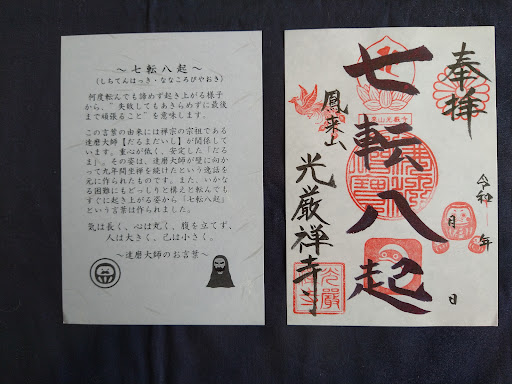 ～七転八起～
(しちてんはっき・ななころびやおき)
何度転んでも諦めず起き上がる様子
から、"失敗してもあきらめずに最後
まで頑張ること"を意味します。
この言葉の由来には禅宗の宗祖である
達磨大師【だるまだいし】が関係して
います。重心が低く、安定した「だる
ま」。その姿は、達磨大師が壁に向か
って九年間坐禅を続けたという逸話を
元に作られたものです。また、いかな
る困難にもどっしりと構え転んでも
すぐに起き上がる姿から「七転八起」
という言葉は作られました。
気は長く、心は丸く、腹を立てず、
人は大きく、己は小さく。
～達磨大師のお言葉～
奉拝
令和 年
月 日
七転八起
鳳来山
光厳禅寺